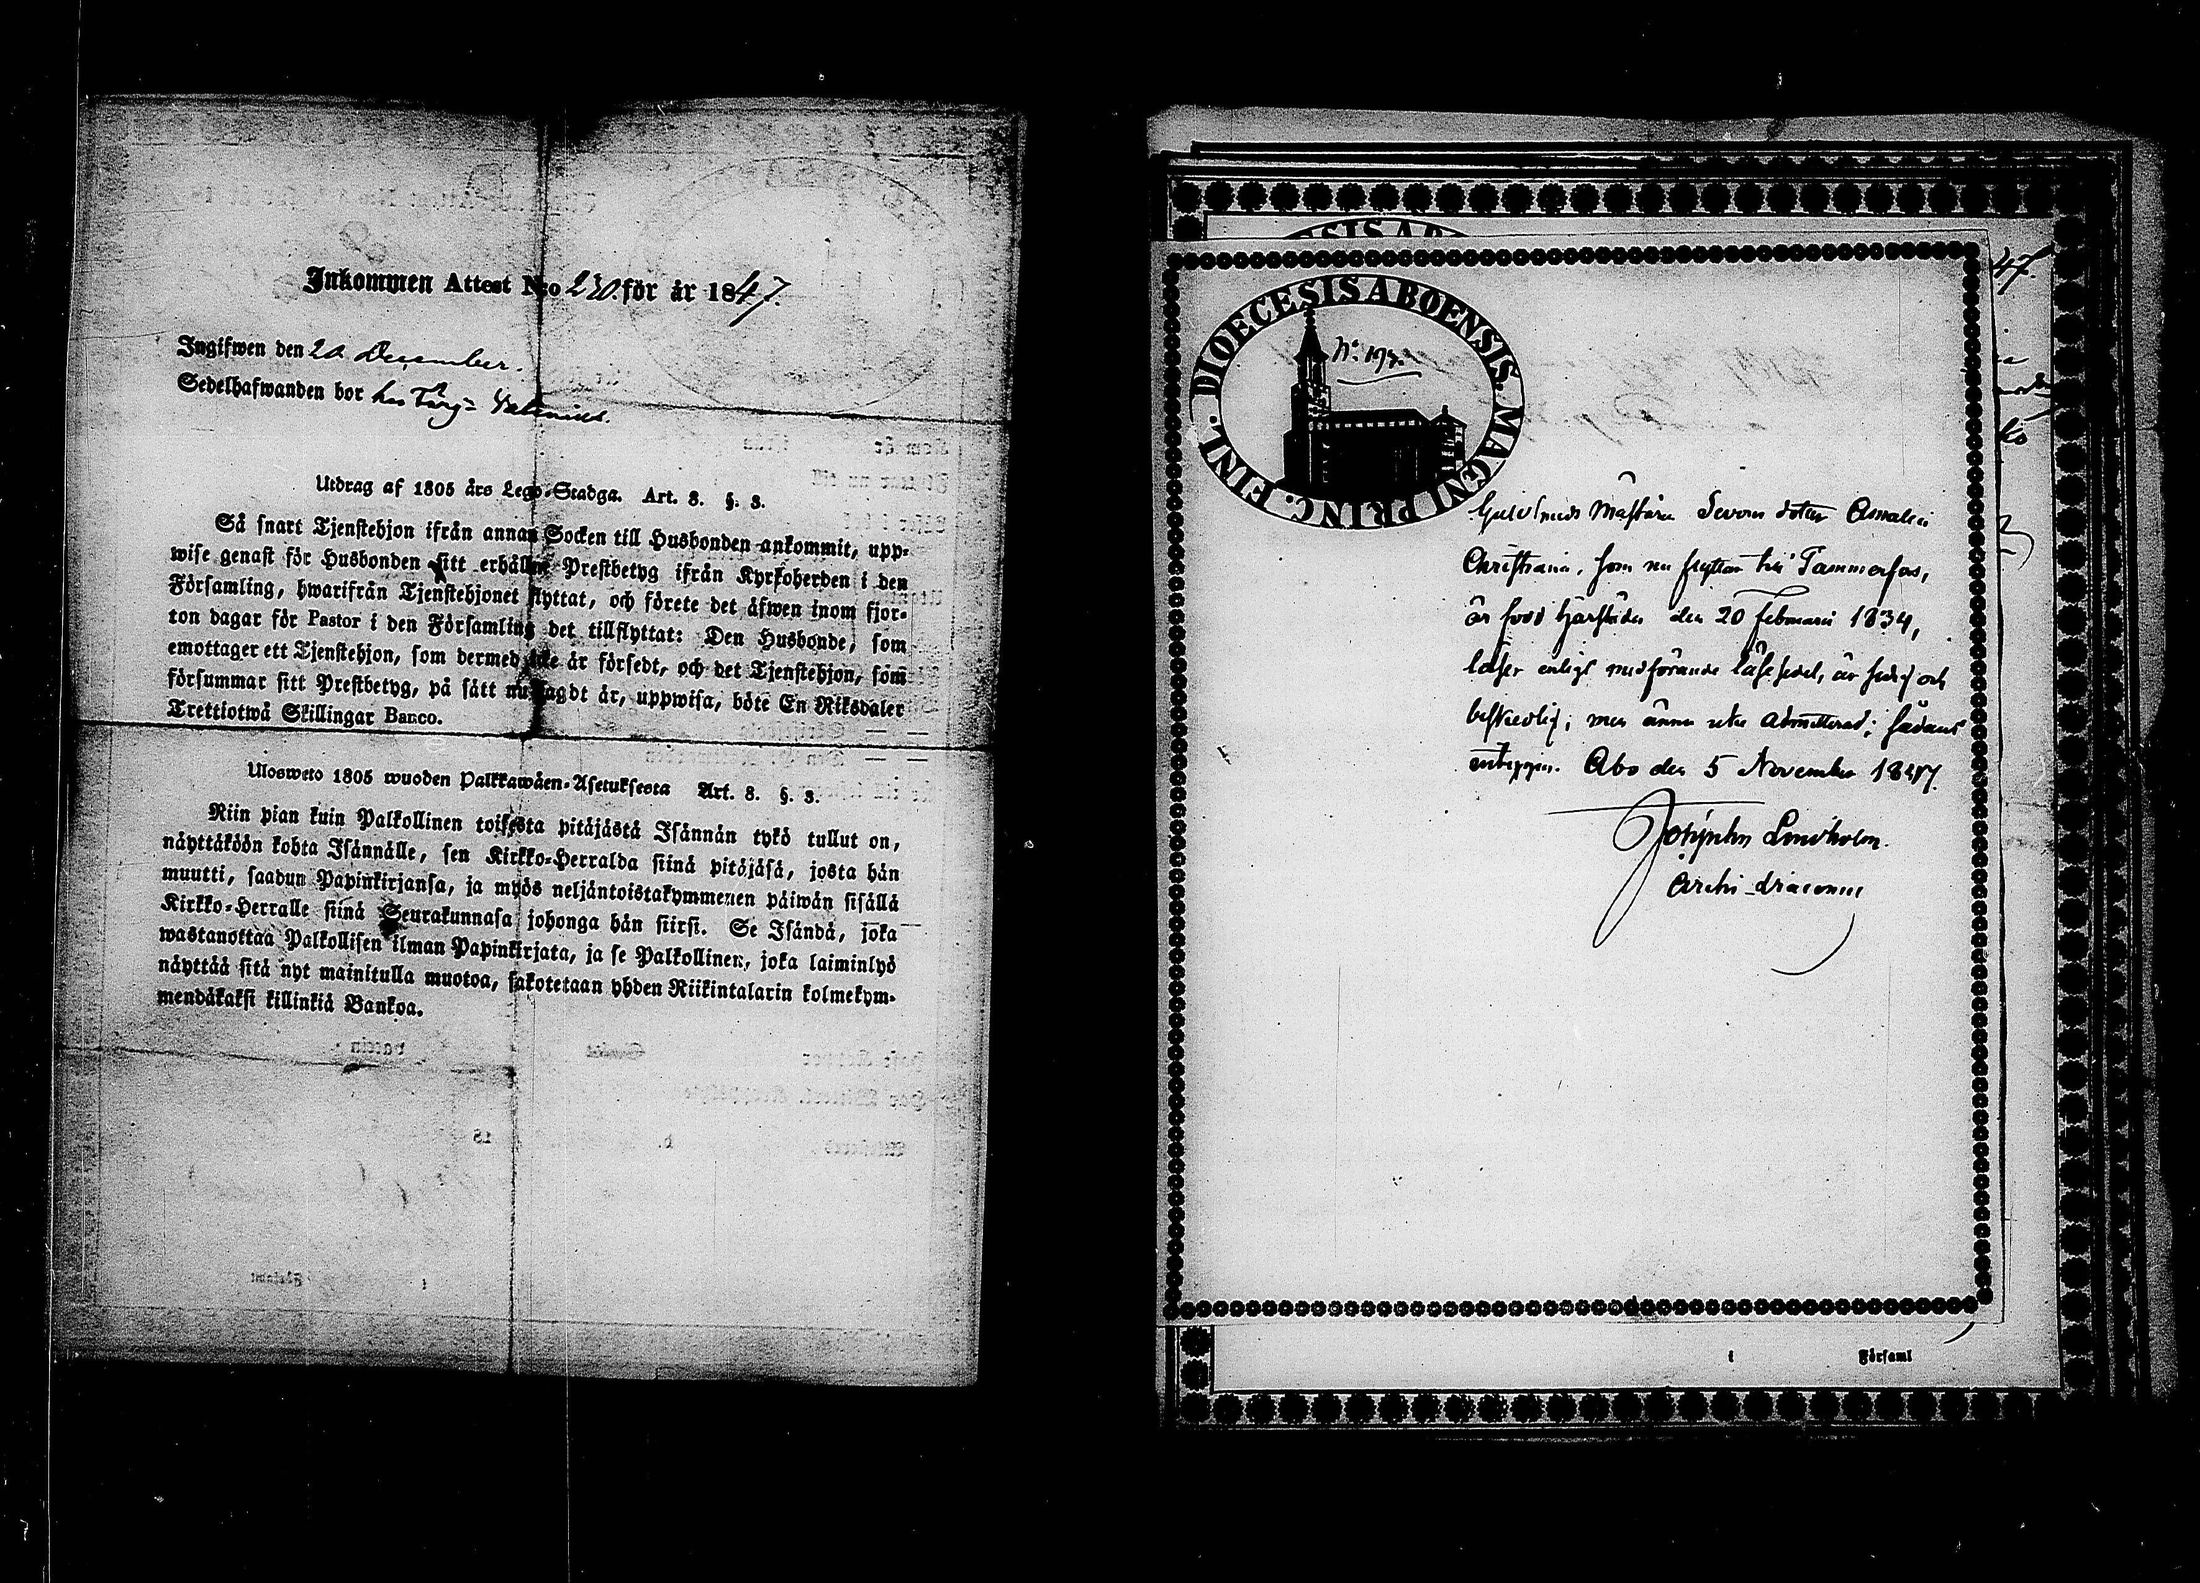 Inkommen Attest N:o 230. för år 1847.
Ingifwen den 20 December.
Sedelhafwanden bor hos
Utdrag af 1805 års Lego-Stadga. Art. 8. §. 3.
Så snart Tjenstehjon ifrån annan Socken till Husbonden ankommit, upp-
wise genast för Husbonden sitt erhållna Prestbetyg ifrån Kyrkoherden i den
Församling, hwarifrån Tjenstehjonet flyttat, och förete det äfwen inom fjor-
ton dagar för Pastor i den Församling det tillflyttat: Den Husbonde, som
emottager ett Tjenstehjon, som dermed icke är försedt, och det Tjenstehjon, som
försummar sitt Prestbetyg, på sätt nu sagdt är, uppwisa, böte En Riksdaler
Trettiotwå Skillingar Banco.
Ulosweto 1805 wuoden Palkkawäen-Asetuksesta Art. 8. §. 3.
Niin pian kuin Palkollinen toisesta pitäjästä Isännän tykö tullut on,
näyttäköön kohta Isännälle, sen Kirkko-Herralda siinä pitäjäsä, josta hän
muutti, saadun Papinkirjansa, ja myös neljäntoistakymmenen päiwän sisällä
Kirkko-Herralle siinä Seurakunnasa johonga hän siirsi. Se Isändä, joka
wastanottaa Palkollisen ilman Papinkirjata, ja se Palkollinen, joka laiminlyö
näyttää sitä nyt mainitulla muotoa, sakotetaan yhden Riikintalarin kolmekym-
mendäkaksi killinkiä Bankoa.
DIOECESIS ABOENSIS. MAGNI PRINC. FINL.
DIOECESIS ABO
47.
Mästaren dotter Amalia
Christiana, som nu flyttar till Tammerfors,
är född härstädes den 20 Februarii 1834,
läser enligt medförande läsesedel, är fredig och
beskedlig; men ännu icke admitterad; sådant
Åbo den 5 November 1847.
Lindholm.
Archi-diaconus
i Församl